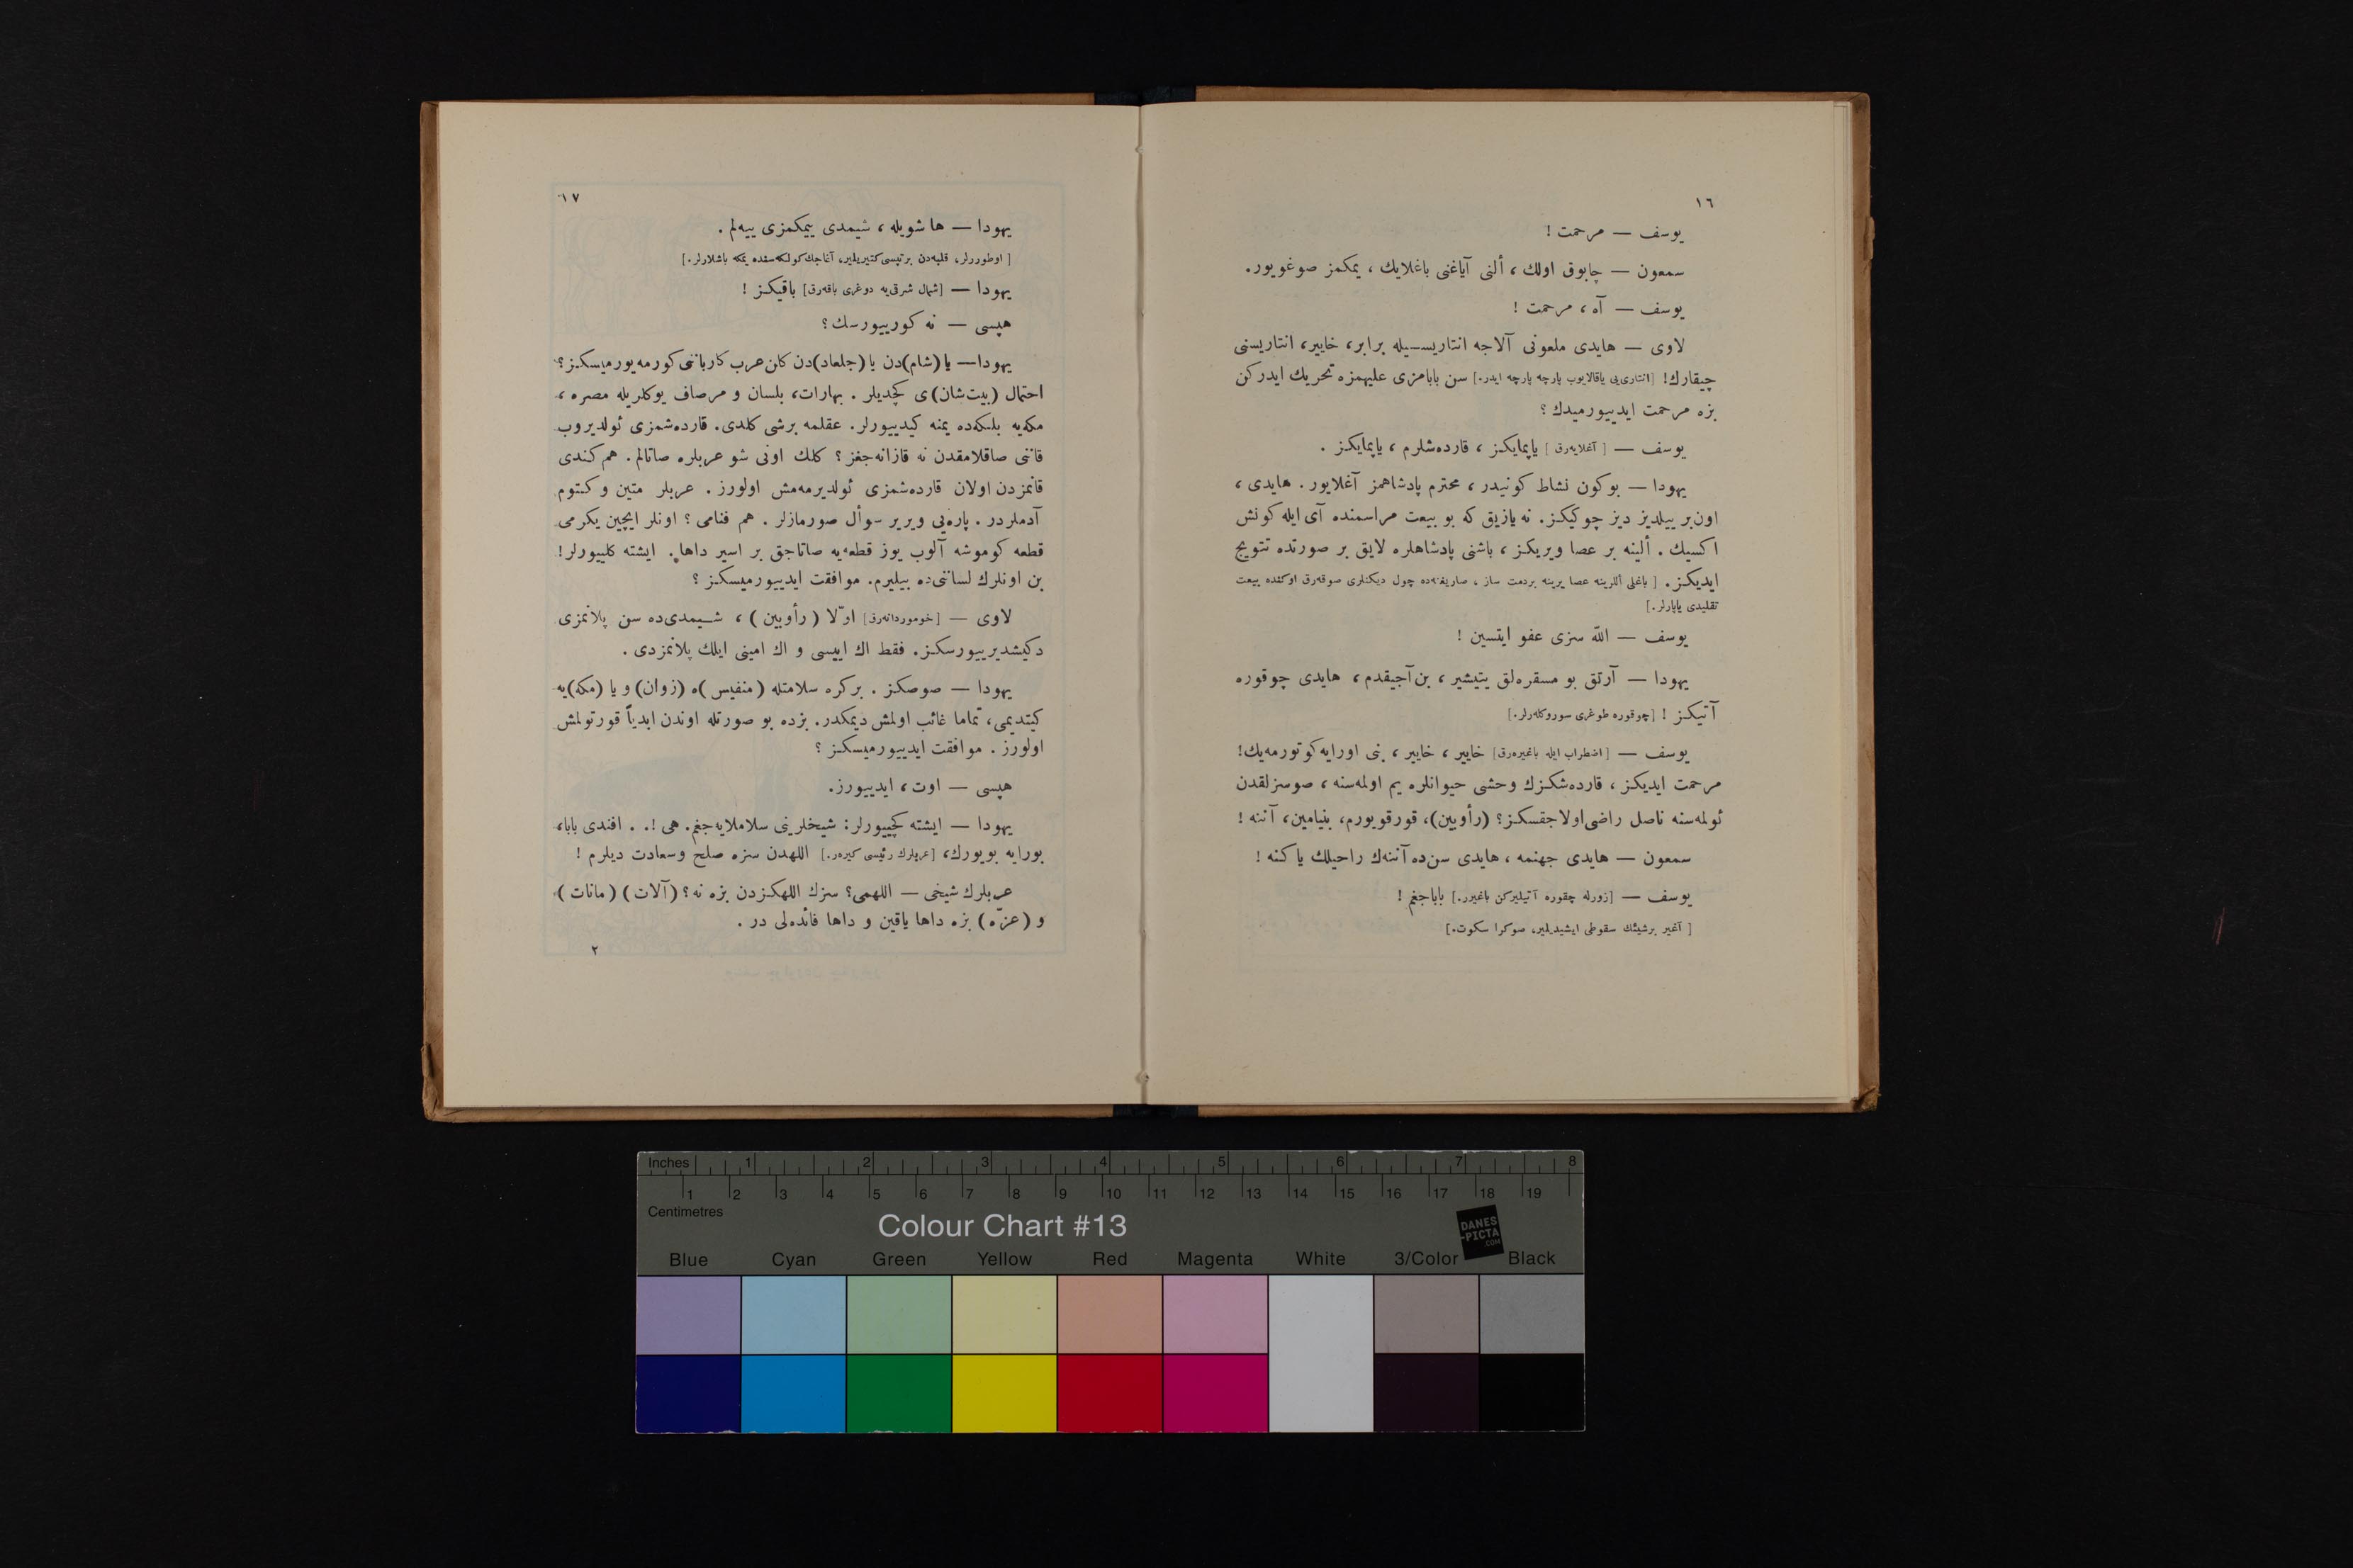 ١٦
يوسف — مرحمت !
سمعون — چابوق اولك ، ألنى آياغنى باغلايك ، يمكمز صوغويور.
يوسف — آه ، مرحمت !
لاوى — هايدى ملعونى آلاجه انتاريسيله برابر، خايير، انتاريسنى
چيقارك! [انتارى‌يى ياقالايوب پارچه پارچه ايدر.] سن بابامزى عليهمزه تحريك ايدركن
بزه مرحمت ايدييورميدك ؟
يوسف — [آغلايه‌رق] ياپمايكز ، قارده‌شلرم ، ياپمايكز .
يهودا — بوكون نشاط كونيدر ، محترم پادشاهمز آغلايور . هايدى ،
اون‌بر ييلديز ديز چوكيكز. نه يازيق كه بو بيعت مراسمنده آى ايله كونش
اكسيك . ألينه بر عصا ويريكز ، باشنى پادشاهلره لايق بر صورتده تتويج
ايديكز . [ باغلى أللرينه عصا يرينه بردمت ساز ، صاريغنه‌ده چول ديكنلرى صوقه‌رق اوكنده بيعت
تقليدى ياپارلر.]
يوسف — الله سزى عفو ايتسين !
يهودا — آرتق بو مسقره‌لق يتيشير ، بن آجيقدم ، هايدى چوقوره
آتيكز ! [چوقوره طوغرى سوروكله‌رلر.]
يوسف — [اضطراب ايله باغيره‌رق] خايير ، خايير ، بنى اورايه كوتورمه‌يك!
مرحمت ايديكز ، قارده‌شكزك وحشى حيوانلره يم اولمه‌سنه ، صوسزلقدن
ئولمه‌سنه ناصل راضى اولاجقسكز؟ (رأوبين)، قورقويورم، بنيامين، آننه !
سمعون — هايدى جهنمه ، هايدى سن‌ده آننه‌ك راحيلك ياكنه !
يوسف — [زورله چقوره آتيليركن باغيرر.] باباجغم !
[ آغير برشيئك سقوطى ايشيديلير، صوكرا سكوت.]
١٧
يهودا — ها شويله ، شيمدى ييمكمزى ييه‌لم .
[ اوطوررلر، قلبه‌دن برتپسى كتيريلير، آغاجك كولكه‌سنده يمكه باشلارلر.]
يهودا — [شمال شرقى‌يه دوغرى باقه‌رق] باقيكز !
هپسى — نه كورييورسك ؟
يهودا — يا (شام)دن يا (جلعاد)دن كلن عرب كاربانى كورمه‌يورميسكز؟
احتمال (بيت‌شان)ى كچديلر . بهارات، بلسان و مرصاف يوكلريله مصره ،
مكه‌يه بلكه‌ده يمنه كيدييورلر. عقلمه برشى كلدى. قارده‌شمزى ئولديروب
قاننى صاقلامقدن نه قازانه‌جغز؟ كلك اونى شو عربلره صاتالم. هم كندى
قانمزدن اولان قارده‌شمزى ئولديرمه‌مش اولورز . عربلر متين و كتوم
آدملردر . پاره‌يى ويرير سوأل صورمازلر . هم فنامى ؟ اونلر ايچين يكرمى
قطعه كوموشه آلوب يوز قطعه‌يه صاتاجق بر اسير داها. ايشته كلييورلر!
بن اونلرك لساننى‌ده بيليرم. موافقت ايدييورميسكز ؟
لاوى — [خوموردانه‌رق] اوّلا (رأوبين) ، شيمدى‌ده سن پلانمزى
دكيشديرييورسكز. فقط اك اييسى و اك امينى ايلك پلانمزدى .
يهودا — صوصكز . بركره سلامتله (منفيس)ه (زوان) و يا (مكه)يه
كيتديمى، تماما غائب اولمش ديمكدر. بزده بو صورتله اوندن ابدياً قورتولمش
اولورز . موافقت ايدييورميسكز ؟
هپسى — اوت ، ايدييورز.
يهودا — ايشته كچييورلر: شيخلرينى سلاملايه‌جغم. هى !. . افندى بابا،
بورايه بويورك، [عربلرك رئيسى كيره‌ر.] اللهدن سزه صلح وسعادت ديلرم !
عربلرك شيخى — اللهمى؟ سزك اللهكزدن بزه نه؟ (آلات) (مانات)
و (عزّه) بزه داها ياقين و داها فائده‌لى در .
٢
Inches 1 2 3 4 5 6 7 8
1 2 3 4 5 6 7 8 9 10 11 12 13 14 15 16 17 18 19
Centimetres
Colour Chart #13
DANES
-PICTA
.COM
Blue Cyan Green Yellow Red Magenta White 3/Color Black